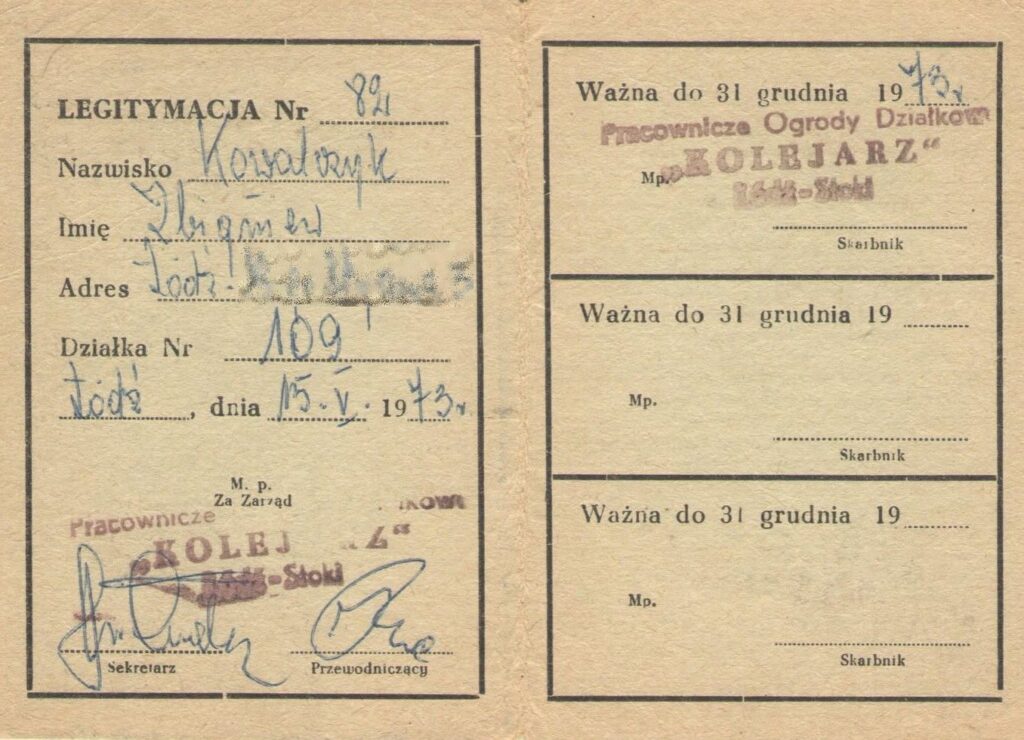 LEGITYMACJA Nr 82
Nazwisko Kowalczyk
Imię Zbigniew
Adres Łódź.
Działka Nr 109
Łódź, dnia 15.V. 1973r
M. p.
Za Zarząd
Pracownicze
„KOLEJ Z"
-Stoki
Sekretarz
Przewodniczący
Ważna do 31 grudnia 1973r
Pracownicze Ogrody Działkowe
Mp. „KOLEJARZ"
Łódź-Stoki
Skarbnik
Ważna do 31 grudnia 19
Mp.
Skarbnik
Ważna do 31 grudnia 19
Mp.
Skarbnik